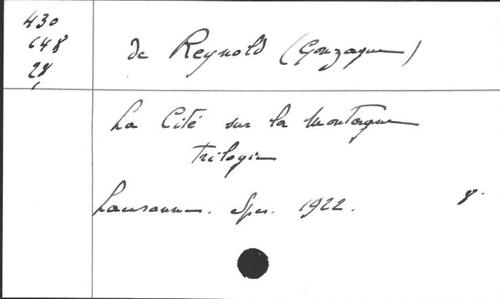 430
648
28
de Reynold (Gonzague)
La Cité sur la Montagne
trilogie
Lausanne. Spes. 1922. 8.